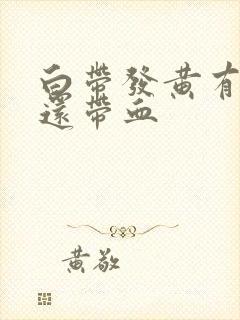 白帶發黃有
還帶血
黃敬